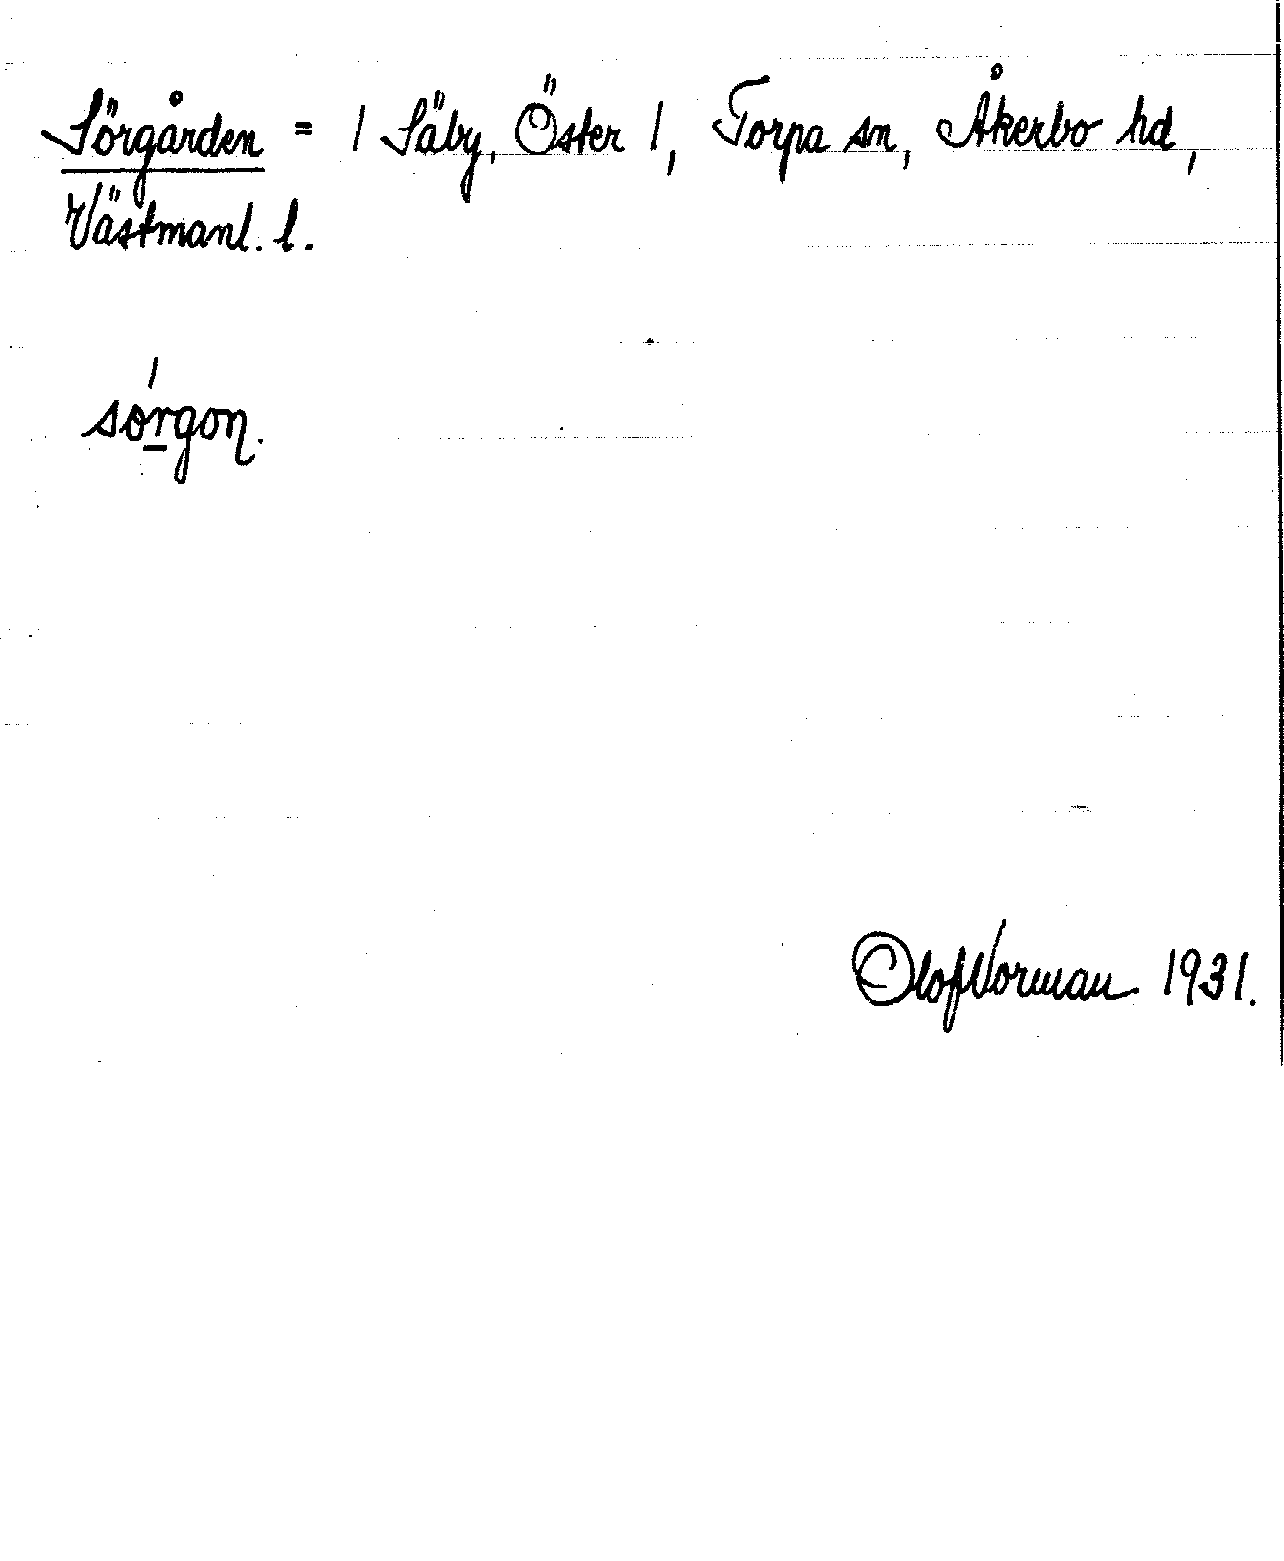 Sörgården = / Säby, Öster /, Torpa sn, Åkerbo hd,
Västmanl. l.
sórgon.
Olof Norman 1931.